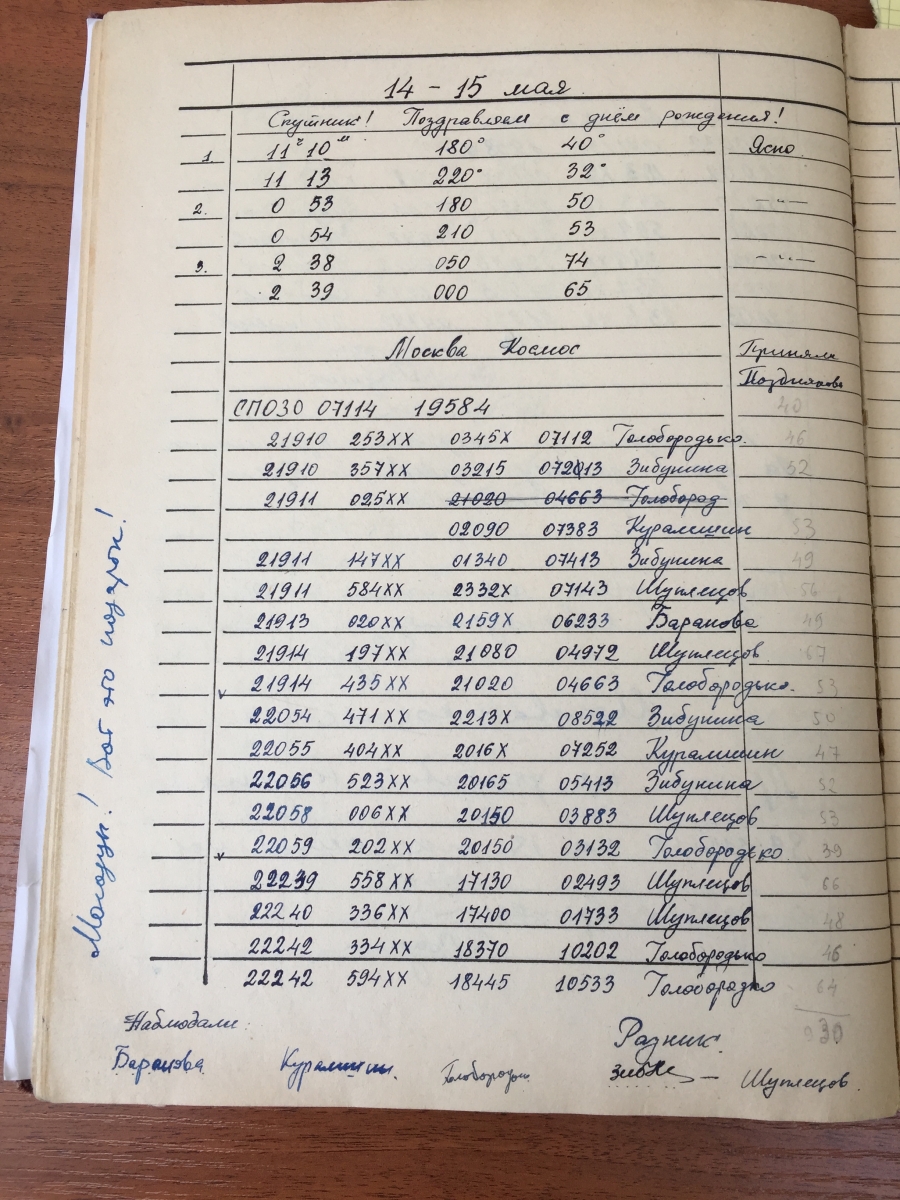 14 - 15 мая
Спутник! Поздравляем с днём рождения!
1. 11ч 10м 180° 40° Ясно
11 13 220° 32°
2. 0 53 180 50 -"-
0 54 210 53
3. 2 38 050 74 -"-
2 39 000 65
Москва Космос Приняла
Позднякова
СПОЗО 07114 19584 40
21910 253XX 0345X 07112 Голобородько 46
21910 357XX 03215 072013 Зибунина 52
21911 025XX 21020 04663 Голобород
02090 07383 Курамшин 53
21911 147XX 01340 07413 Зибунина 49
21911 584XX 2332X 07143 Шуплецов 56
21913 020XX 2159X 06233 Баранова 49
21914 197XX 21080 04972 Шуплецов 67
v 21914 435XX 21020 04663 Голобородько. 53
22054 471XX 2213X 08522 Зибунина 50
22055 404XX 2016X 07252 Курамшин 47
22056 523XX 20165 05413 Зибунина 52
22058 006XX 20150 03883 Шуплецов 53
v 22059 202XX 20150 03132 Голобородько 39
22239 558XX 17130 02493 Шуплецов 66
22240 336XX 17400 01733 Шуплецов 48
22242 334XX 18370 10202 Голобородько 46
22242 594XX 18445 10533 Голобородко 64
930
Наблюдали:
Разник.
Баранова Курамшин. Шуплецов.
Молодцы! Вот это подарок!